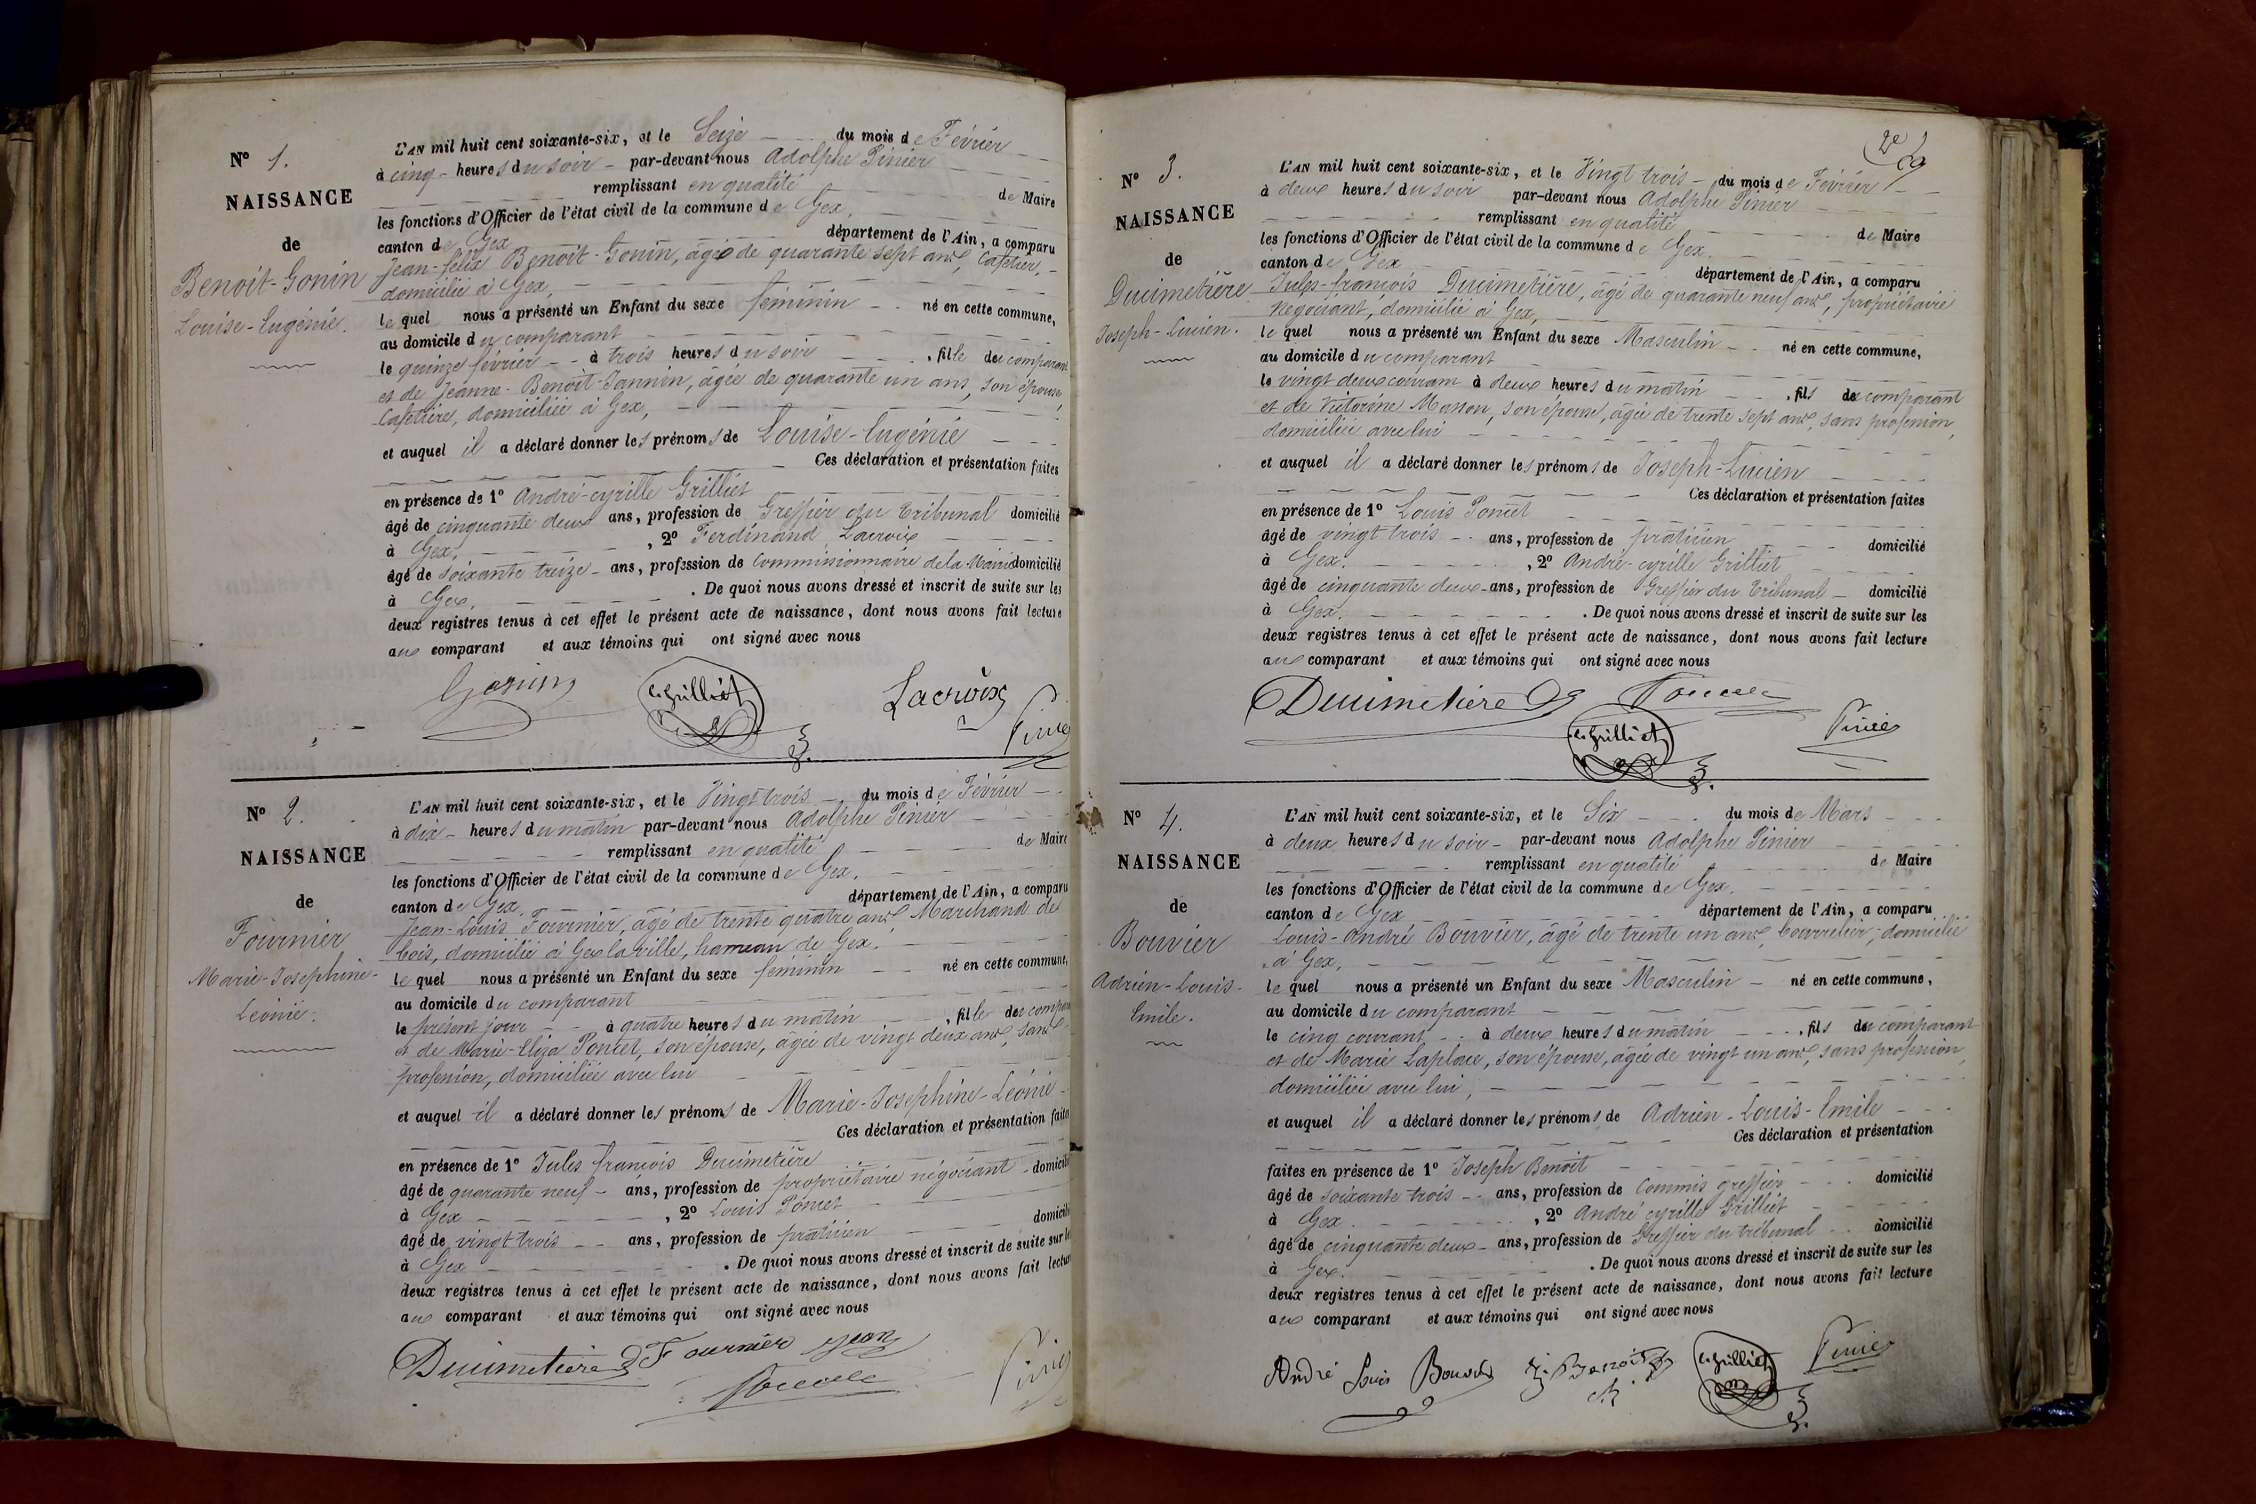 N° 1.
NAISSANCE
de
Benoit-Gonin
Louise-Eugénie.
L'AN mil huit cent soixante-six, et le Seize du mois de Février
à cinq heures du soir par-devant nous Adolphe Pinier
remplissant en qualité de Maire
les fonctions d'Officier de l'état civil de la commune de Gex,
canton de Gex département de l'Ain, a comparu
Jean-félix Benoit-Gonin, âgé de quarante sept ans, Cafetier,
domicilié à Gex,
lequel nous a présenté un Enfant du sexe féminin né en cette commune,
au domicile du comparant
le quinze février à trois heures du soir, fille du comparant
et de Jeanne-Benoit-Jannin, âgée de quarante un ans, son épouse,
Cafetière, domiciliée à Gex,
et auquel il a déclaré donner les prénoms de Louise-Eugénie
Ces déclaration et présentation faites
en présence de 1° André-cyrille Grilliet
âgé de cinquante deux ans, profession de Greffier du tribunal domicilié
à Gex, 2° Ferdinand Lacroix
âgé de soixante treize ans, profession de Commissionnaire de la Mairie domicilié
à Gex. De quoi nous avons dressé et inscrit de suite sur les
deux registres tenus à cet effet le présent acte de naissance, dont nous avons fait lecture
aux comparant et aux témoins qui ont signé avec nous
Gonin Grilliet Lacroix
Pinier
N° 2.
NAISSANCE
de
Fournier
Marie-Josephine-
Léonie.
L'AN mil huit cent soixante-six, et le Vingt trois du mois de Février
à dix heures du matin par-devant nous Adolphe Pinier
remplissant en qualité de Maire
les fonctions d'Officier de l'état civil de la commune de Gex.
canton de Gex département de l'Ain, a comparu
Jean-Louis Fournier, âgé de trente quatre ans, Marchand de
bois, domicilié à Gex la ville, hameau de Gex.
lequel nous a présenté un Enfant du sexe féminin né en cette commune,
au domicile du comparant
le présent jour à quatre heures du matin, fille des compar
et de Marie-Eliza Poncet, son épouse, âgée de vingt deux ans, sans
profession, domiciliée avec lui
et auquel il a déclaré donner les prénoms de Marie-Josephine-Léonie
Ces déclaration et présentation faites
en présence de 1° Jules françois Ducimetière
âgé de quarante neuf ans, profession de propriétaire négociant domicilié
à Gex, 2° Louis Poncet
âgé de vingt trois ans, profession de praticien domicilié
à Gex. De quoi nous avons dressé et inscrit de suite sur les
deux registres tenus à cet effet le présent acte de naissance, dont nous avons fait lecture
aux comparant et aux témoins qui ont signé avec nous
Ducimetière Fournier Jean
Poncet Pinier
N° 3.
NAISSANCE
de
Ducimetière
Joseph-Lucien.
L'AN mil huit cent soixante-six, et le Vingt trois du mois de Février
à deux heures du soir par-devant nous Adolphe Pinier
remplissant en qualité de Maire
les fonctions d'Officier de l'état civil de la commune de Gex
canton de Gex département de l'Ain, a comparu
Jules-françois Ducimetière, âgé de quarante neuf ans, propriétaire
Négociant, domicilié à Gex,
lequel nous a présenté un Enfant du sexe Masculin né en cette commune,
au domicile du comparant
le vingt deux courant à deux heures du matin, fils du comparant
et de Victorine Masson, son épouse, âgée de trente sept ans, sans profession,
domiciliée avec lui
et auquel il a déclaré donner les prénoms de Joseph-Lucien
Ces déclaration et présentation faites
en présence de 1° Louis Poncet
âgé de vingt trois ans, profession de praticien domicilié
à Gex. 2° André-cyrille Grilliet
âgé de cinquante deux ans, profession de Greffier du tribunal domicilié
à Gex. De quoi nous avons dressé et inscrit de suite sur les
deux registres tenus à cet effet le présent acte de naissance, dont nous avons fait lecture
aux comparant et aux témoins qui ont signé avec nous
Ducimetière Poncet
Grilliet Pinier
N° 4.
NAISSANCE
de
Bouvier
Adrien-Louis-
Emile.
L'AN mil huit cent soixante-six, et le Six du mois de Mars
à deux heures du soir par-devant nous Adolphe Pinier
remplissant en qualité de Maire
les fonctions d'Officier de l'état civil de la commune de Gex.
canton de Gex département de l'Ain, a comparu
Louis-André Bouvier, âgé de trente un ans, bourrelier, domicilié
à Gex,
lequel nous a présenté un Enfant du sexe Masculin né en cette commune,
au domicile du comparant
le cinq courant à deux heures du matin, fils du comparant
et de Marie Laplace, son épouse, âgée de vingt un ans, sans profession,
domiciliée avec lui,
et auquel il a déclaré donner les prénoms de Adrien-Louis-Emile
Ces déclaration et présentation
faites en présence de 1° Joseph Benoit
âgé de soixante trois ans, profession de Commis greffier domicilié
à Gex. 2° André cyrille Grilliet
âgé de cinquante deux ans, profession de Greffier du tribunal domicilié
à Gex. De quoi nous avons dressé et inscrit de suite sur les
deux registres tenus à cet effet le présent acte de naissance, dont nous avons fait lecture
aux comparant et aux témoins qui ont signé avec nous
André Louis Bouvier J. Benoit Grilliet Pinier